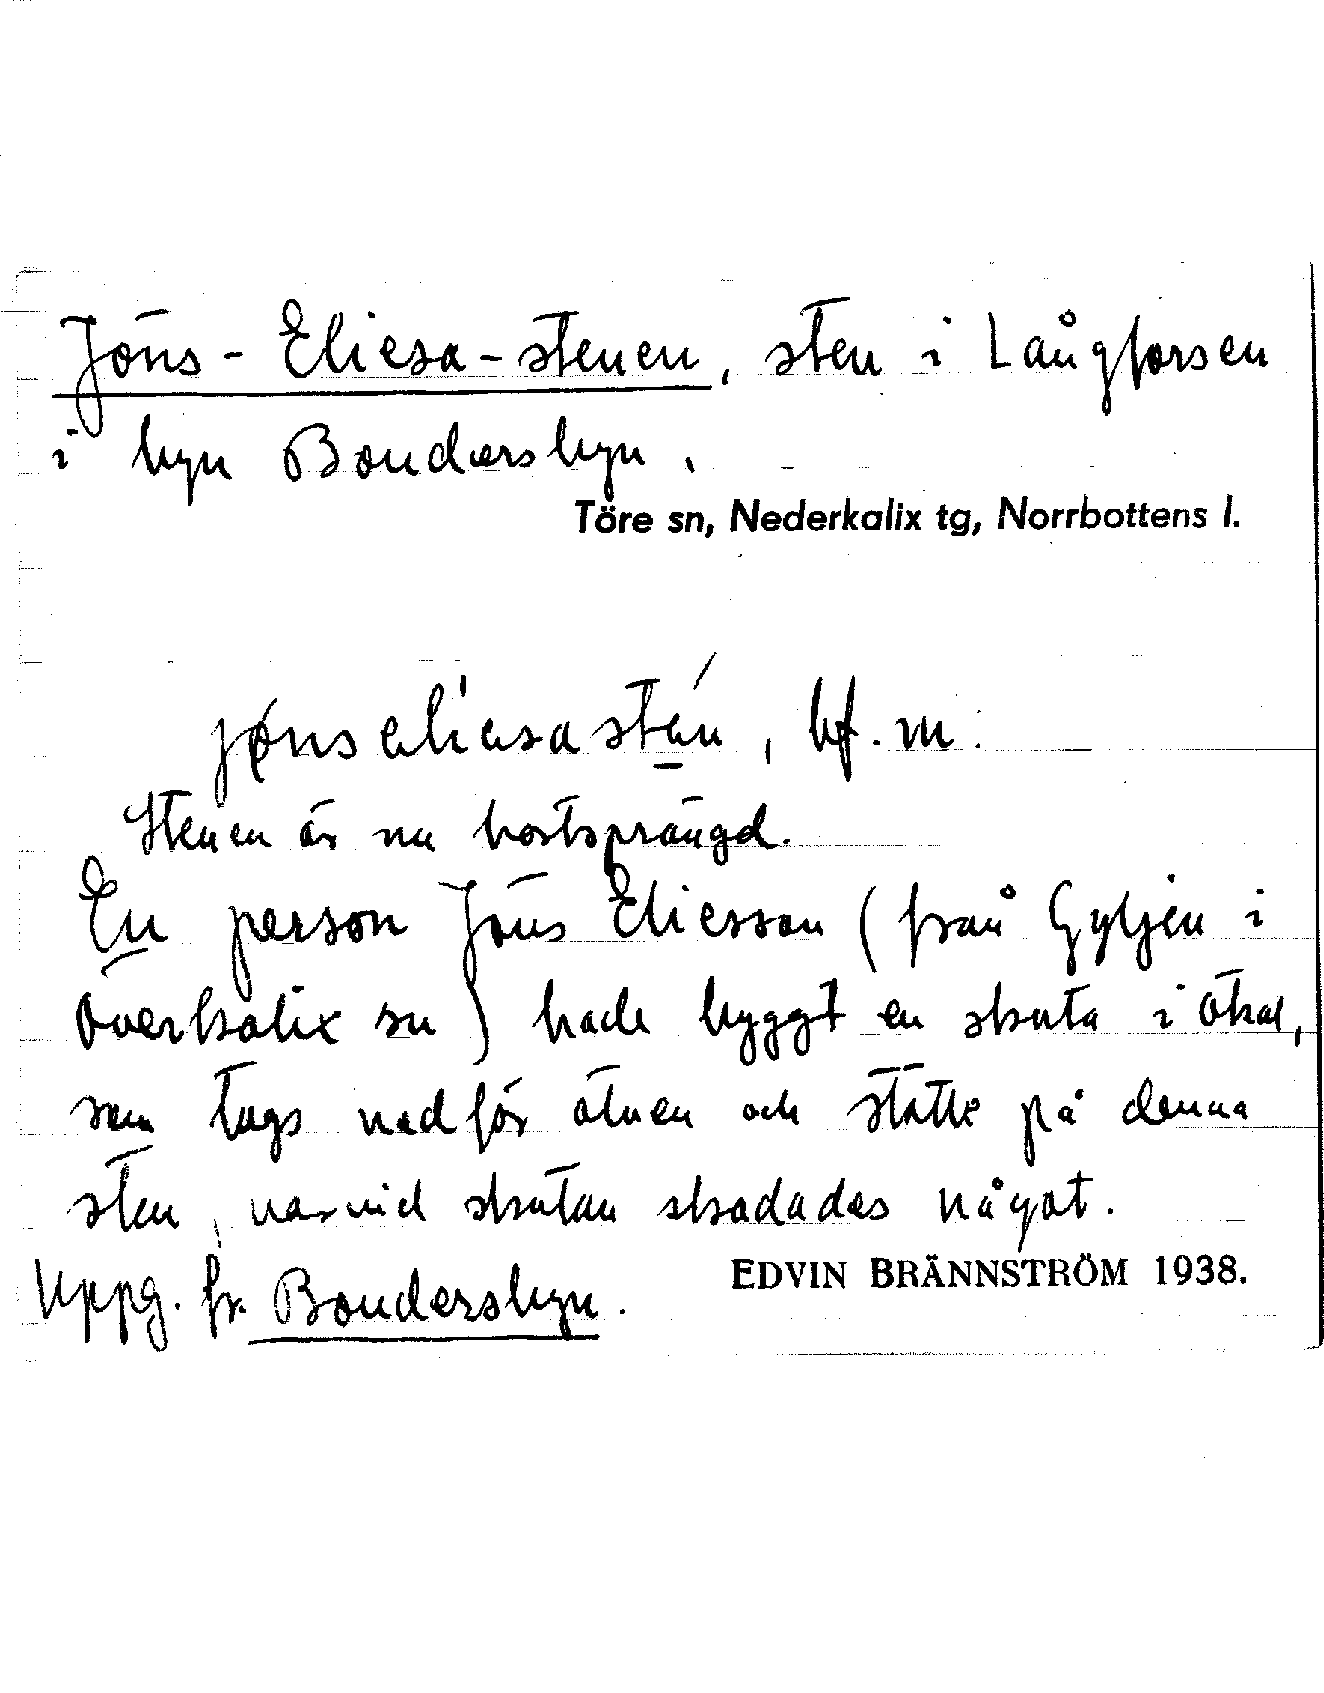 Jöns-Eliesa-stenen, sten i Långforsen
i byn Bondersbyn.
Töre sn, Nederkalix tg, Norrbottens l.
bf. m.
Stenen är nu bortsprängd.
En person Jöns Eliesson (från Gyljen i
Överkalix sn) hade byggt en skuta i
som togs nedför älven och stötte på denna
sten, varvid skutan skadades något.
Uppg. fr. Bondersbyn.
EDVIN BRÄNNSTRÖM 1938.